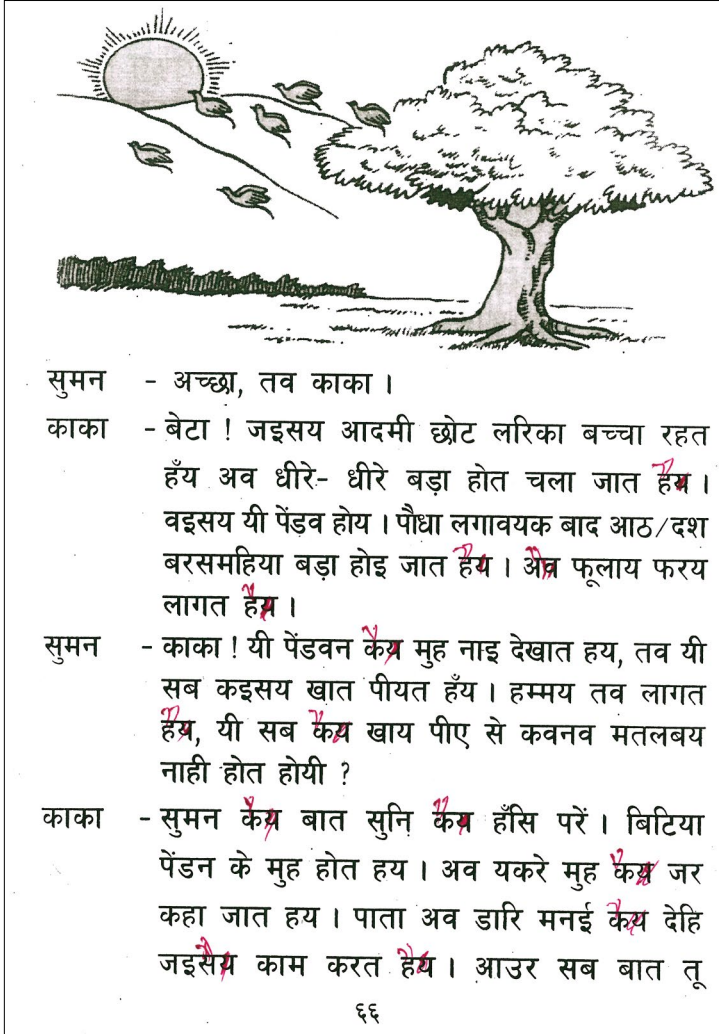 सुमन - अच्छा, तव काका ।
काका - बेटा ! जइसय आदमी छोट लरिका बच्चा रहत
हँय अव धीरे- धीरे बड़ा होत चला जात हय ।
वइसय यी पेंडव होय । पौधा लगावयक बाद आठ/दश
बरसमहिया बड़ा होइ जात हय । अव फूलाय फरय
लागत हय ।
सुमन - काका ! यी पेंडवन कय मुह नाइ देखात हय, तव यी
सब कइसय खात पीयत हँय । हम्मय तव लागत
हय, यी सब कय खाय पीए से कवनव मतलबय
नाही होत होयी ?
काका - सुमन कय बात सुनि कय हँसि परें । बिटिया
पेंडन के मुह होत हय । अव यकरे मुह कय जर
कहा जात हय । पाता अव डारि मनई कय देहि
जइसय काम करत हय । आउर सब बात तू
६६